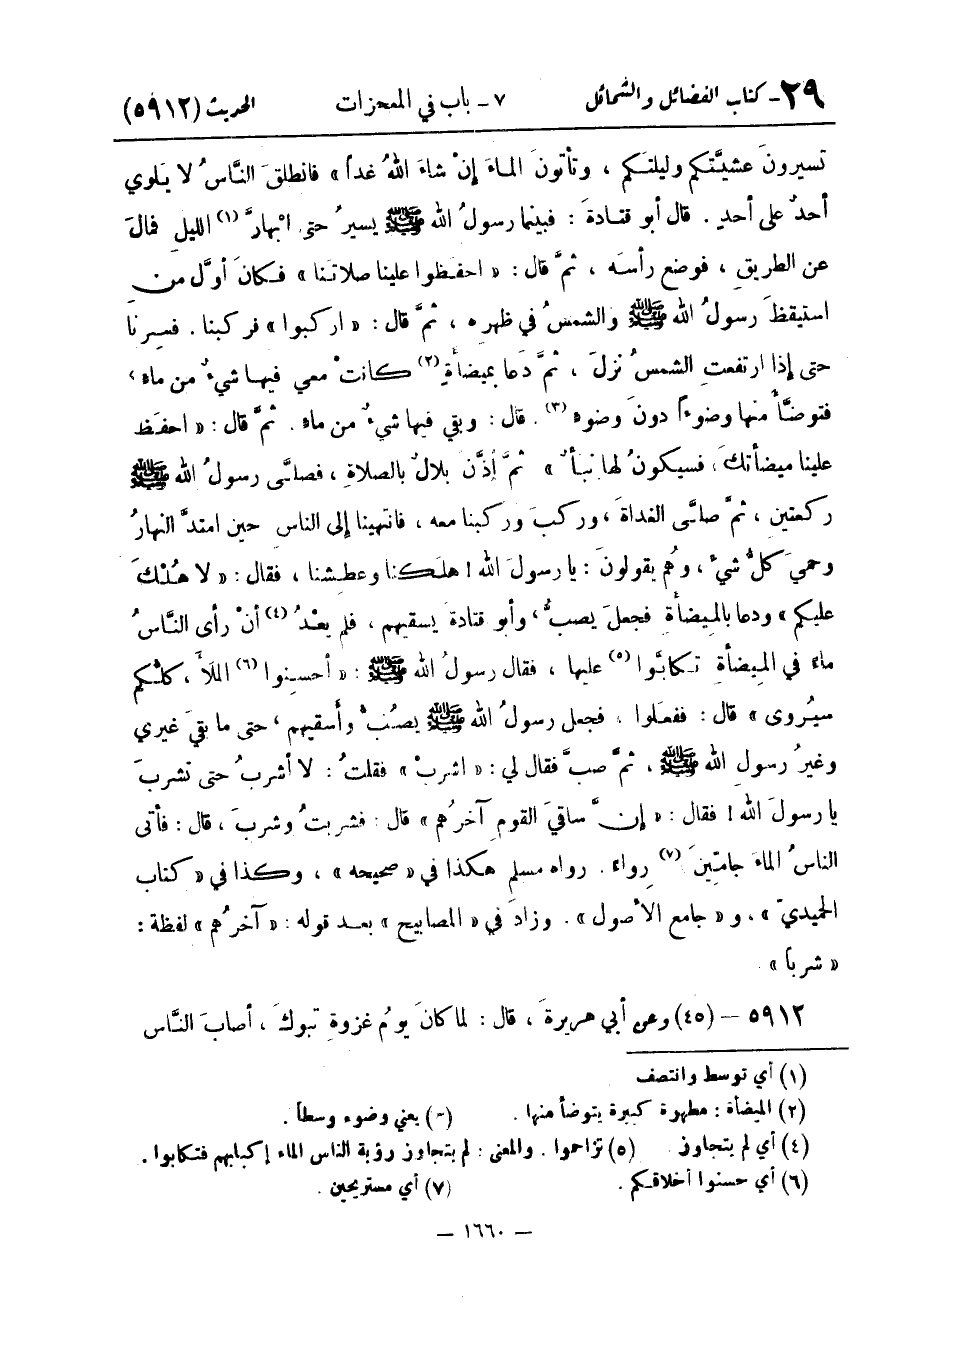 ٢٩- كتاب الفضائل والشمائل ٧ - باب في المعجزات الحديث (٥٩١٢)
تسيرونَ عشيَّتكم وليلتَكم ، وتأتونَ الماءَ إنْ شاءَ اللهُ غداً » فانطلقَ النَّاسُ لا يَلوي
أحدٌ على أحدٍ . قال أبو قتادةَ : فبينما رسولُ الله ﷺ يسيرُ حتى ابْهارَّ (١) الليل فمالَ
عن الطريقِ ، فوضع رأسَه ، ثمَّ قال : « احفَظوا علينا صلاتَنا » فكانَ أوَّل من
استيقظَ رسولُ الله ﷺ والشمسُ في ظهرِه ، ثمَّ قال : « اركبوا » فركبنا . فسِرنا
حتى إذا ارتفعتِ الشمسُ نزلَ ، ثمَّ دَعا بميضأةٍ (٢) كانتْ معي فيها شيءٌ من ماءٍ ،
فتوضَّأَ منها وضوءاً دونَ وضوءٍ (٣) . قال : وبقي فيها شيءٌ من ماءٍ . ثمَّ قال : « احفَظ
علينا ميضأتكَ ، فسيكونُ لها نبأٌ » ثمَّ أذَّن بلالٌ بالصلاةِ ، فصلَّى رسولُ الله ﷺ
ركعتينِ ، ثمَّ صلَّى الغداةَ ، وركبَ وركبنا معه ، فانتهينا إلى الناس حين امتدَّ النهارُ
وحميَ كلُّ شيءٍ ، وهُم يقولونَ : يا رسولَ الله ! هلَكنا وعطِشنا ، فقال : « لا هُلْكَ
عليكم » ودعا بالمِيضأةِ فجعلَ يصبُّ ، وأبو قتادةَ يَسقيهم ، فلم يعْدُ (٤) أنْ رأى النَّاسُ
ماءً في المِيضأةِ تكابَّوا (٥) عليها ، فقال رسولُ الله ﷺ : « أحسِنوا (٦) الملأَ ، كلُّكم
سيُروى » قال : ففعَلوا ، فجعل رسولُ الله ﷺ يصُبُّ وأسقيهم ، حتى ما بقيَ غيري
وغيرُ رسولِ الله ﷺ ، ثمَّ صبَّ فقال لي : « اشربْ » فقلتُ : لا أشربُ حتى تشربَ
يا رسولَ الله ! فقال : « إنَّ ساقيَ القومِ آخرُهم » قال : فشربتُ وشربَ ، قال : فأتى
الناسُ الماءَ جامِّينَ (٧) رِواءً . رواه مسلم هكذا في « صحيحه » ، وكذا في « كتاب
الحميديّ » ، و « جامع الأصول » . وزادَ في « المصابيح » بعد قوله : « آخرُهم » لفظة :
« شرباً »
٥٩١٢ - (٤٥) وعن أبي هريرةَ ، قال : لما كانَ يومُ غزوةِ تبوكَ ، أصابَ النَّاس
(١) أي توسط وانتصف
(٢) الميضأة : مطهرة كبيرة يتوضأ منها . (٣) يعني وضوء وسطاً .
(٤) أي لم يتجاوز (٥) تزاحموا . والمعنى : لم يتجاوز رؤية الناس الماء إكبابهم فتكابوا .
(٦) أي حسنوا أخلاقكم . (٧) أي مستريحين .
— ١٦٦٠ —